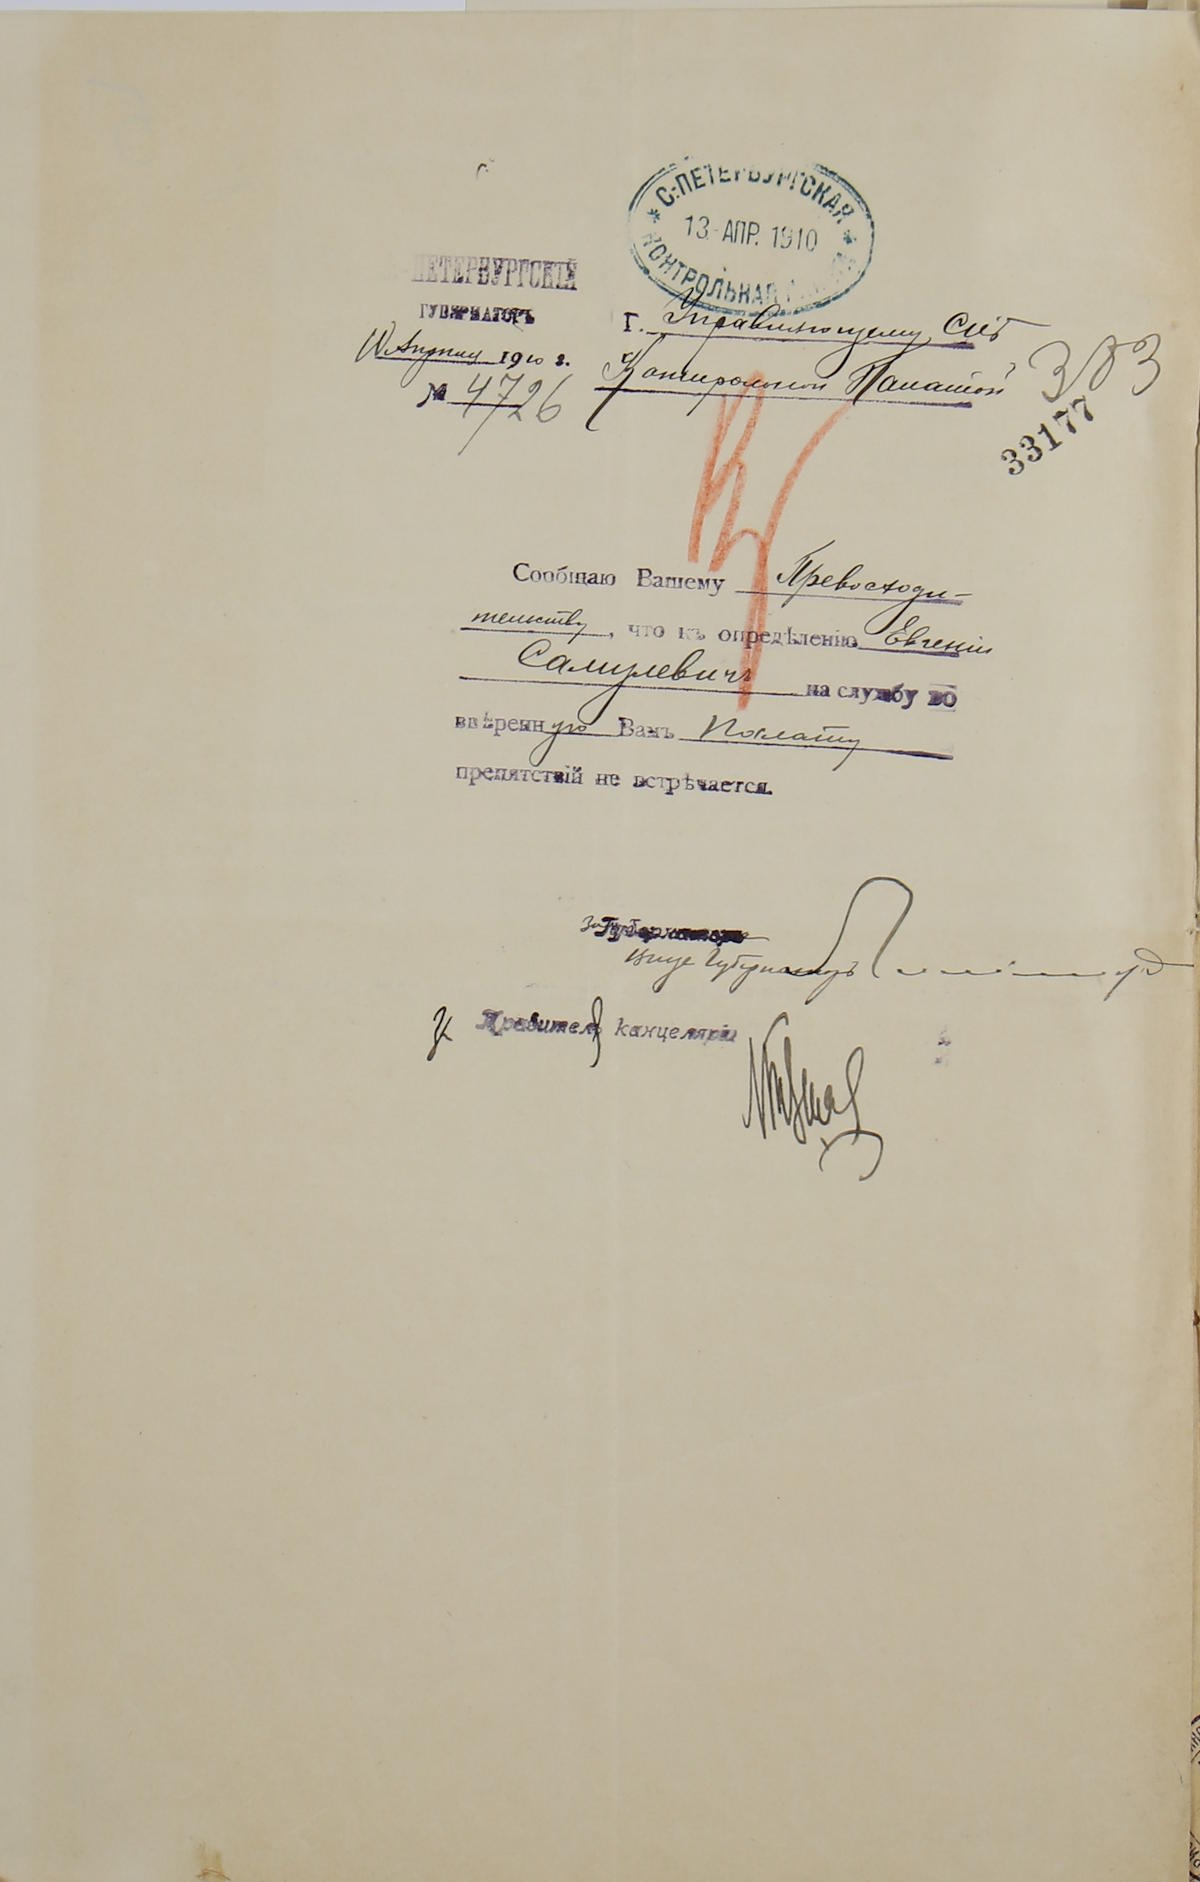 С.-ПЕТЕРБУРГСКАЯ
13 АПР. 1910
КОНТРОЛЬНАЯ
ПЕТЕРБУРГСКІЙ
ГУБЕРНАТОРЪ
Апрѣля 1910 г.
№ 4726
Г. Управляющему СПб
Контрольной Палатой
303
33177
Сообщаю Вашему Превосходи-
тельству, что къ опредѣленію Евгеніи
Самулевичъ на службу во
ввѣренную Вамъ Палату
препятствій не встрѣчается.
За Губернатора
Вице Губернаторъ
Правитель канцеляріи